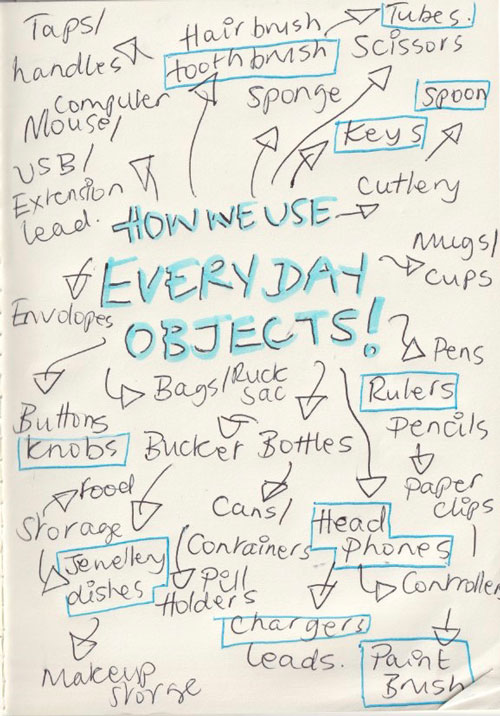 Taps/
handles
Hairbrush
toothbrush
Tubes.
Scissors
Computer
Mouse/
USB/
Extension
lead.
Sponge
Keys
Spoon
Cutlery
HOW WE USE
EVERYDAY
OBJECTS!
Mugs/
cups
Envolopes
Pens
Rulers
Pencils
Paper
clips
Bags/Ruck
Sac
Buttons
Knobs
Bucket
Bottles
food
Storage
Jewellery
dishes
Makeup
Storge
Cans/
Containers
Pill
Holders
Head
Phones
Controller
Chargers
leads.
Paint
Brush